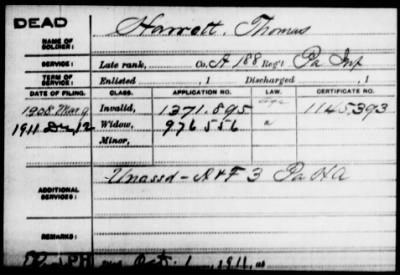 DEAD
NAME OF SOLDIER: Harrott, Thomas
SERVICE: Late rank, Co. A, 188 Reg't Pa Inf
TERM OF SERVICE: Enlisted , 1 Discharged , 1
DATE OF FILING. CLASS. APPLICATION NO. LAW. CERTIFICATE NO.
1908 Mar 9 Invalid, 1371.895 1145393
1911 Dec 12 Widow, 976556
Minor,
ADDITIONAL SERVICES: Unassd - A & F 3 Pa HA
REMARKS:
Oct. 1 1911, at